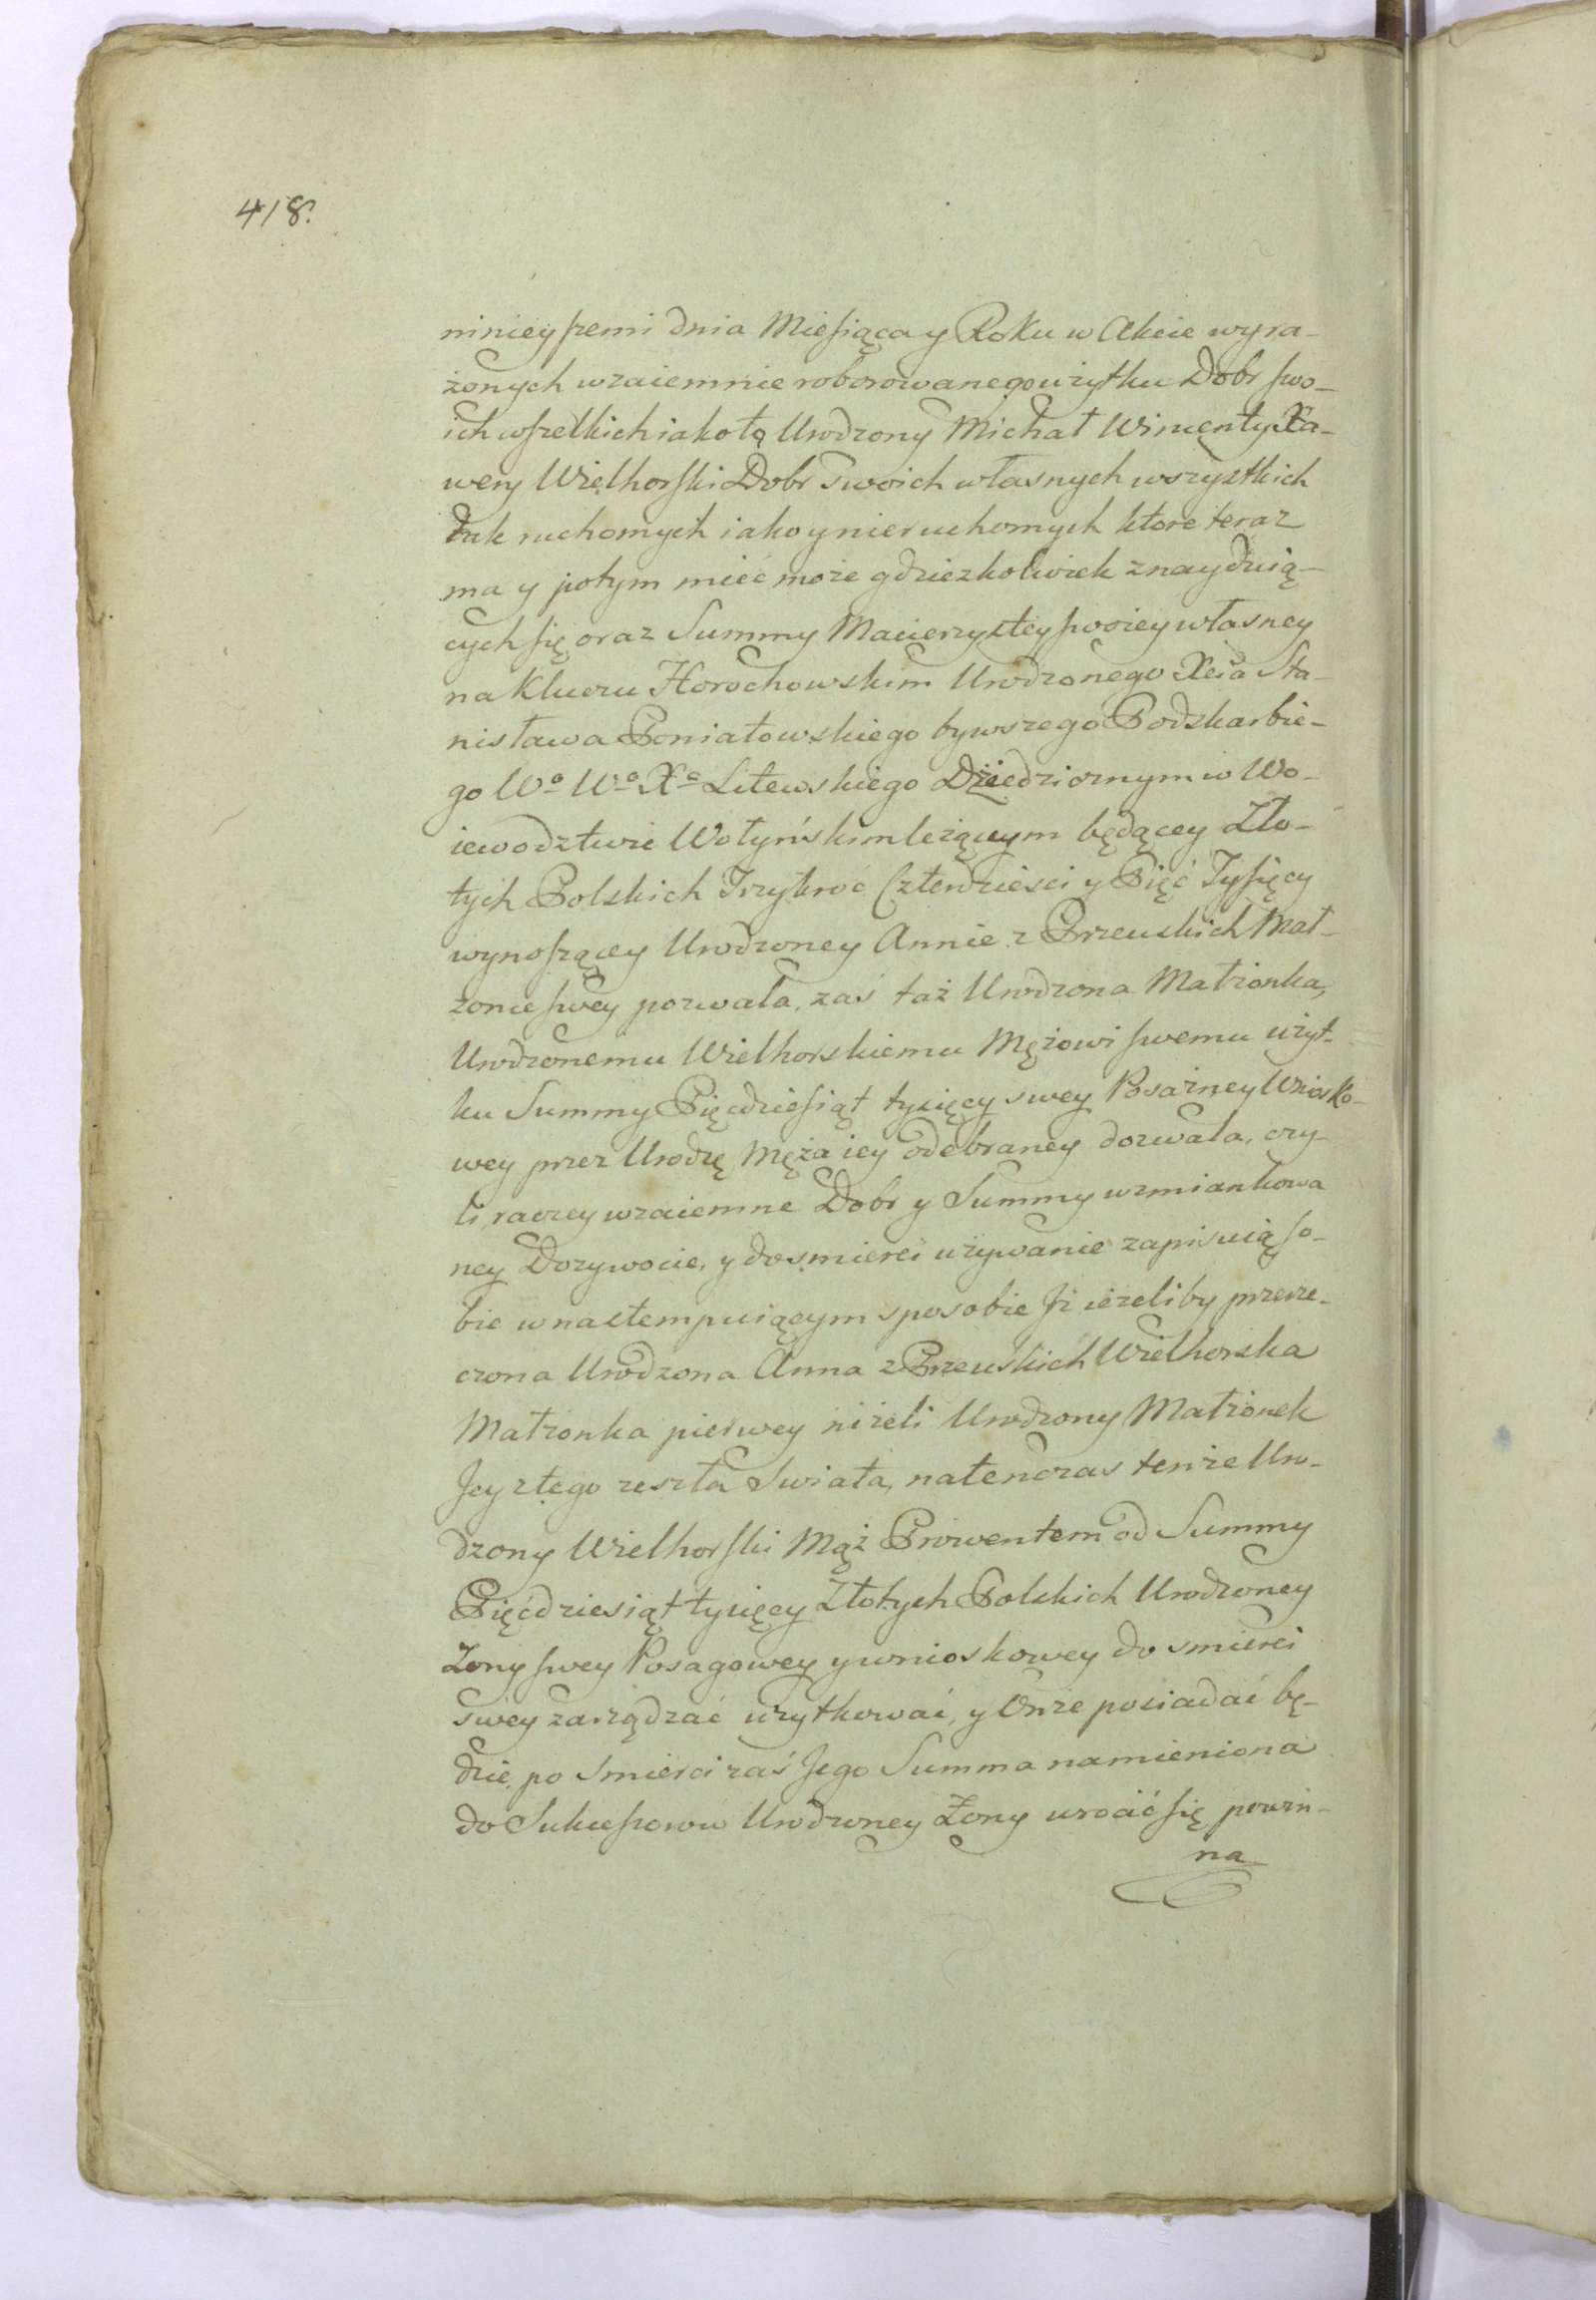 418.
ninieyszemi dnia Miesiąca y Roku w Akcie wyra-
żonych wzaiemnie roborowanego użytku Dobr swo-
ich wszelkich iakoto Urodzony Michał Wincenty Xa-
wery Wielhorski Dobr swoich własnych wszystkich
tak ruchomych iako y nieruchomych ktore teraz
ma y potym mieć może gdziezkolwiek znayduią-
cych się oraz Summy Macierzystey swoiey własney
na Kluczu Horochowskim Urodzonego Xcia Sta-
nisława Poniatowskiego bywszego Podskarbie-
go Wo Wo Xa Litewskiego Dziedzicznym w Wo-
iewodztwie Wołyńskim leżącym będącey Zło-
tych Polskich Trzykroć Czterdziesci y Pięć Tysięcy
wynoszącey Urodzoney Annie z Brzeuskich Mał-
żonce swey pozwala, zaś taż Urodzona Małżonka,
Urodzonemu Wielhorskiemu Mężowi swemu użyt-
ku Summy Pięćdziesiąt tysięcy swey Posażney Wniosko-
wey przez Urodzę Męża iey odebraney dozwala, czy-
li raczey wzaiemne Dobr y Summy wzmiankowa
ney Dozywocie, y do smierci używanie zapisuią so-
bie w nastempuiącym sposobie Iż ieżeliby przerze-
czona Urodzona Anna z Brzeuskich Wielhorska
Małżonka pierwey niżeli Urodzony Małżonek
Jey z tego zeszła Swiata, natenczas tenże Uro-
dzony Wielhorski Mąż Prowentem od Summy
Pięćdziesiąt tysięcy Złotych Polskich Urodzoney
Zony swey Posagowey y wnioskowey do smierci
swey zarządzać użytkować, y Onże posiadać bę-
dzie, po Smierci zaś Jego Summa namieniona
do Sukcessorow Urodzoney Żony wrocić się powin-
na